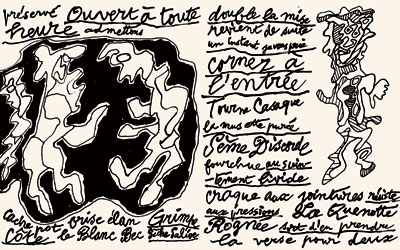 préservé Ouvert à toute
heure admettons
double la mise
revient de suite
un instant
cornez à
l'entrée
Tourne Casaque
la musette
Sème Discorde
fourchue au suin
-tement livide
craque aux jointures résiste
aux pressions La Quenotte
Rognée sort d'en prendre
la verse pour deux
Cache pot brise elan Grimpe
Côte le Blanc Bec